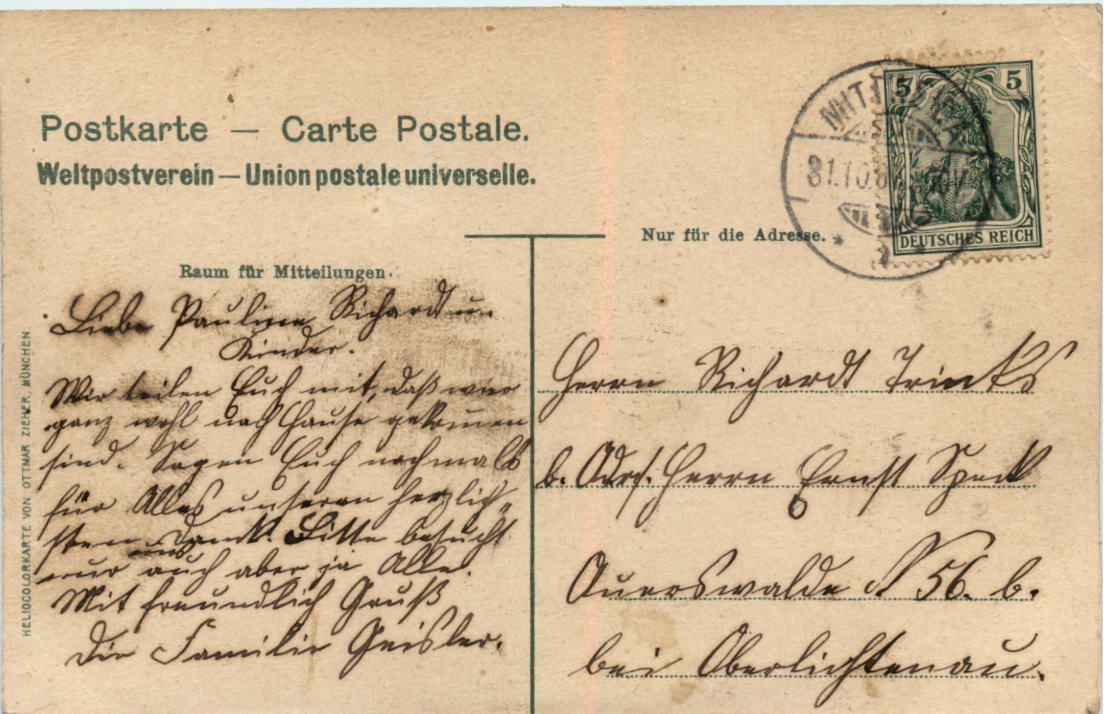 Postkarte — Carte Postale.
Weltpostverein — Union postale universelle.
Nur für die Adresse.
Raum für Mitteilungen.
Liebe Pauline Richardt u.
Kinder.
Wir teilen Euch mit, daß wir
ganz wohl nach Hause gekomen
sind. Sagen Euch nochmals
für Alles unseren herzlich-
sten Dank. Bitte besucht
uns
nur auch aber ja Alle.
Mit freundlich Gruß
Die Familie Geisler.
Herrn Richardt Trinks
b. Adrs. Herrn Ernst Speck
Auerswalde N 56. b.
bei Oberlichtenau.
HELIOCOLORKARTE VON OTTMAR ZIEHER, MÜNCHEN
5 5
DEUTSCHES REICH
31.10.